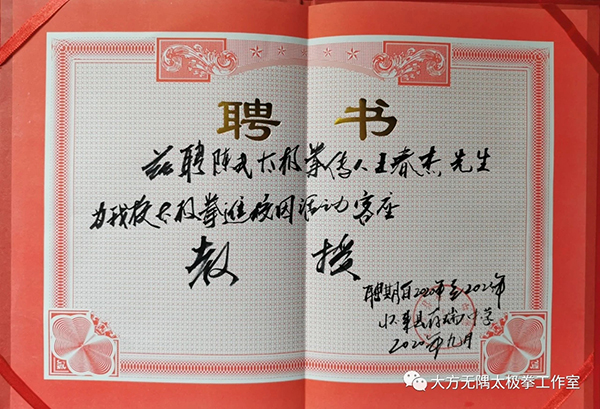 聘书
兹聘陈式太极拳传人王春杰先生
为我校太极拳进校园活动客座
教授
聘期自2020年至2025年
怀来县存瑞中学
2020年九月
大方无隅太极拳工作室